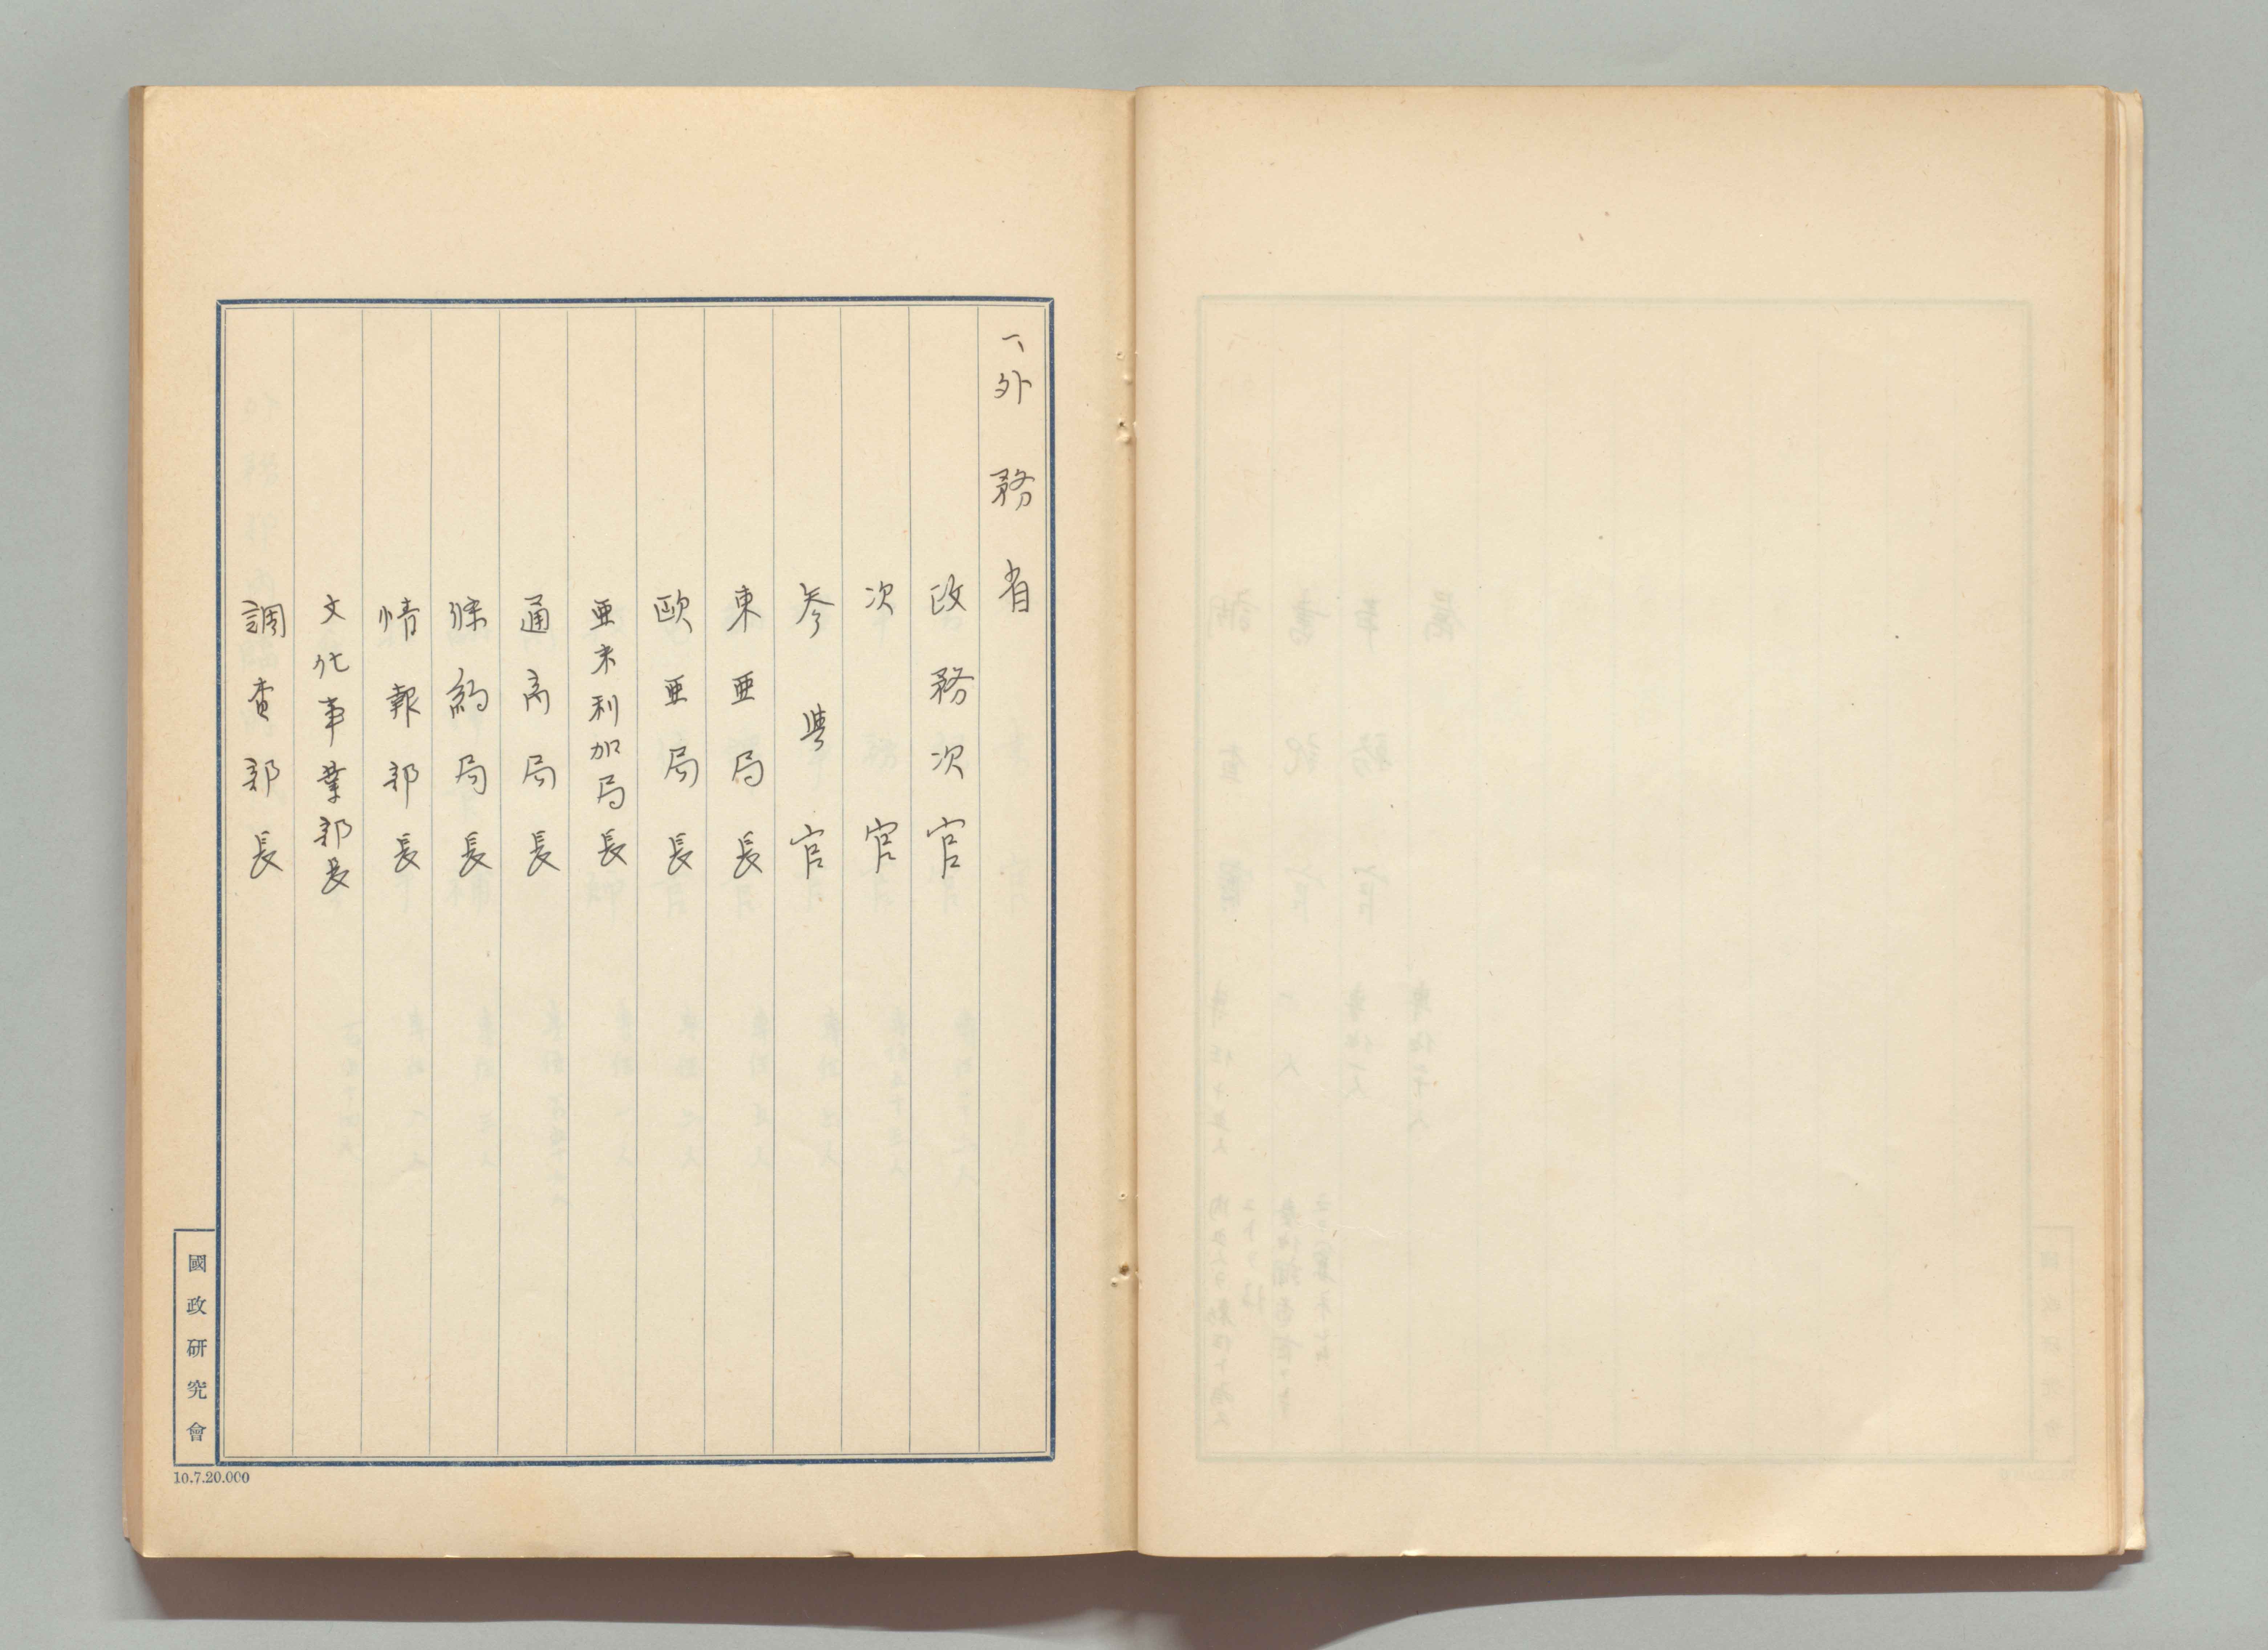 一、外務省
政務次官
次官
参與官
東亜局長
歐亜局長
亜米利加局長
通商局長
條約局長
情報部長
文化事業部長
調査部長
國政研究會
10.7.20.000